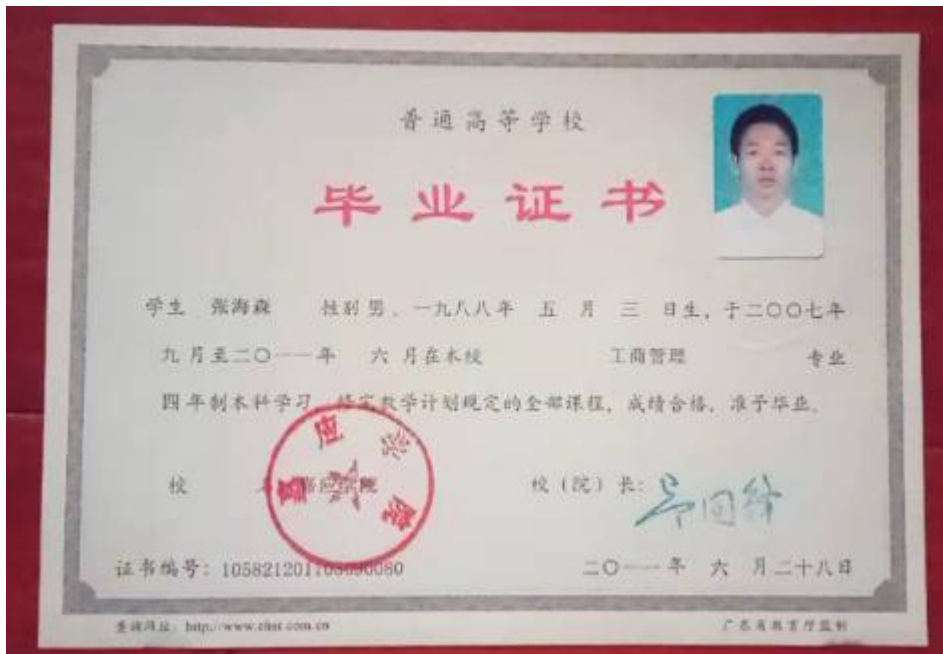 普通高等学校
毕业证书
学生 张海森 性别 男，一九八八年 五 月 三 日生，于二〇〇七年
九 月至二〇一一年 六 月在本校 工商管理 专业
四 年制本科学习，修完教学计划规定的全部课程，成绩合格，准予毕业。
校 名：嘉应学院 校（院）长：
嘉应学院
证书编号：105821201105690080 二〇一一年 六 月二十八日
查询网址：http://www.chsi.com.cn 广东省教育厅监制